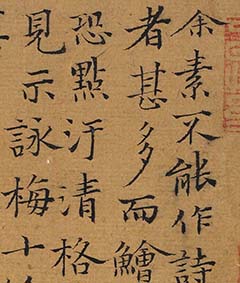 余素不能作詩
者甚多而鱠
恐點汙清格
見示詠梅十